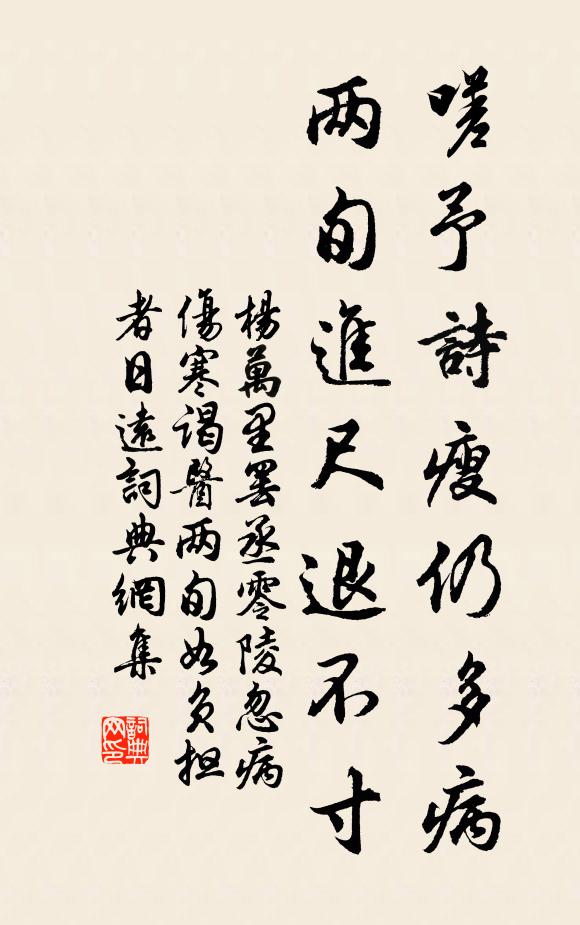 嗟予詩瘦仍多病
两旬進尺退不寸
楊萬里罷丞零陵忽病
傷寒謁醫两旬如负担
者日遠詞典網集
詞典网印